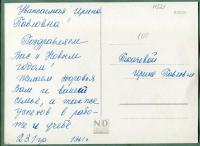 Уважаемая Ирина
Павловна!
Поздравляем
Вас с Новым
годом!
Желаем здоровья
Вам и вашей
семье, а также
успехов в рабо-
те и учёбе
231 гр
Ткачевой
Ирине Павловне